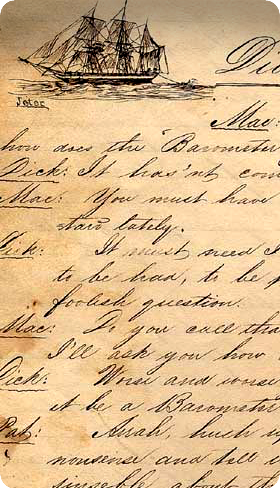 Di
Jotoc
Mac:
how does the "Barometer
Dick: It has'nt com
Mac: You must have
stard lately.
Dick: It must need I
to be head, to be
foolish question.
Mac: Do you call tha
I'll ask you how
Dick: Worse and worse
it be a Barometre
Pat: Arrah, huch u
nonsense and till
about th